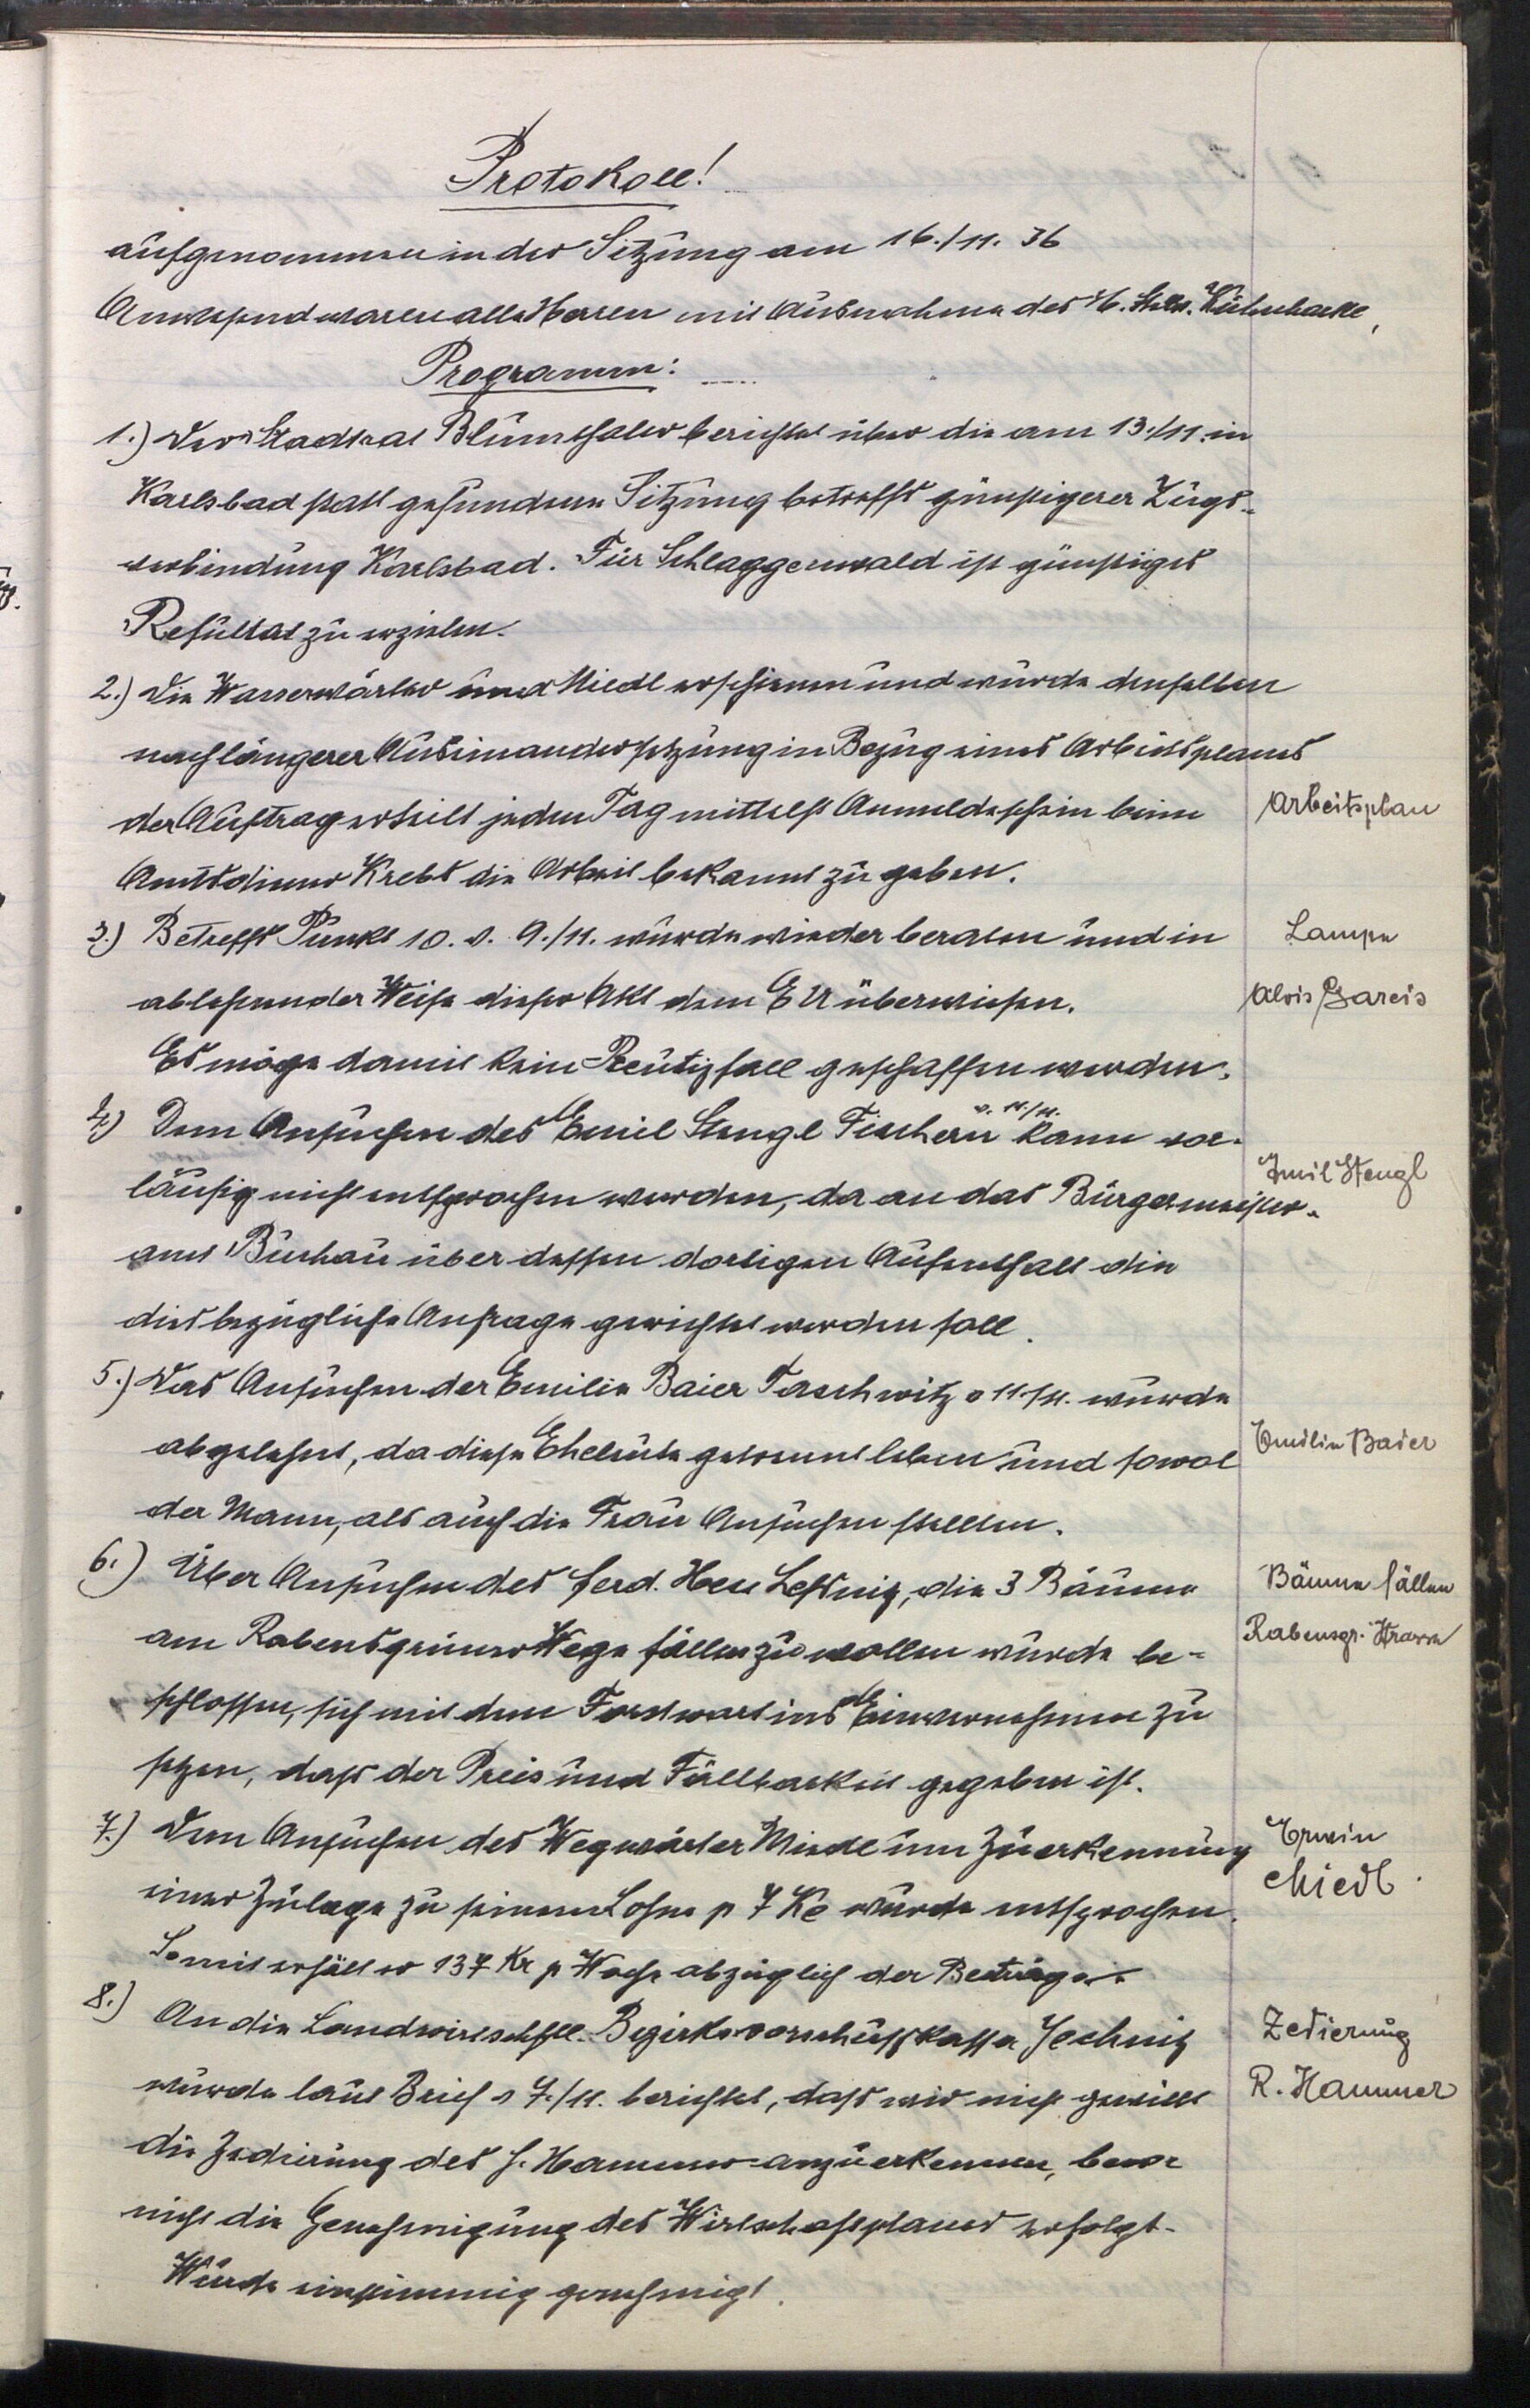 Protokoll!
aufgenommen in der Sitzung am 16./11. 36
Anwesend waren alle Herren mit Ausnahme des H.
Programm:
1.) Der Stadtrat Blumthaler berichtet über die am 13./11. in
Karlsbad statt gefundene Sitzung betreffs günstigerer Zugs-
verbindung Karlsbad. Für Schlaggenwald ist günstiges
Resultat zu erzielen.
2.) Die Wasserwärter und Miedl erschienen und wurde denselben
nach längerer Auseinandersetzung in Bezug eines Arbeitsplanes
der Auftrag erteilt jeden Tag mittelst Anmeldeschein beim
Arbeitsplan
Amtsdiener Krebs die Arbeit bekannt zu geben.
3.) Betreffs Punkt 10. v. 9./11. wurde wieder beraten und in
Lampe
ablehnender Weise dieser Akt dem EU überwiesen.
Alois Gareis
Es möge damit kein Präcedenzfall geschaffen werden.
4.) Dem Ansuchen des Emil Stengl Fischern v. 11./11. kann vor-
Emil Stengl
läufig nicht entsprochen werden, da an das Bürgermeister-
amt Buchau über dessen dortigen Aufenthalt die
diesbezügliche Anfrage gerichtet werden soll.
5.) Das Ansuchen der Emilie Baier Taschwitz v 11./11. wurde
abgelehnt, da diese Eheleute getrennt leben und sowol
Emilie Baier
der Mann, als auch die Frau Ansuchen stellten.
6.) Über Ansuchen des Ferd. Heu Leßnig, die 3 Bäume
Bäume fällen
am Rabensgrüner Wege fällen zu wollen wurde be-
Rabensgr. Strasse
schlossen, sich mit dem Forstwart ins Einvernehmen zu
setzen, dass der Preis und Fällbarkeit gegeben ist.
7.) Dem Ansuchen des Wegwärter Miedl um Zuerkennung
Erwin
einer Zulage zu seinem Lohne p 7 Kč wurde entsprochen.
Miedl
Somit erhält er 137 Kr p Woche abzüglich der Beiträge.
8.) An die Landwirtschftl. Bezirksvorschusskassa Jechnitz
Zedierung
wurde laut Brief v 7./11. berichtet, dass wir nicht gewillt
R. Hammer
die Zedierung des J. Hammer anzuerkennen, bevor
nicht die Genehmigung des Wirtschaftsplanes erfolgt.
Wurde einstimmig genehmigt.